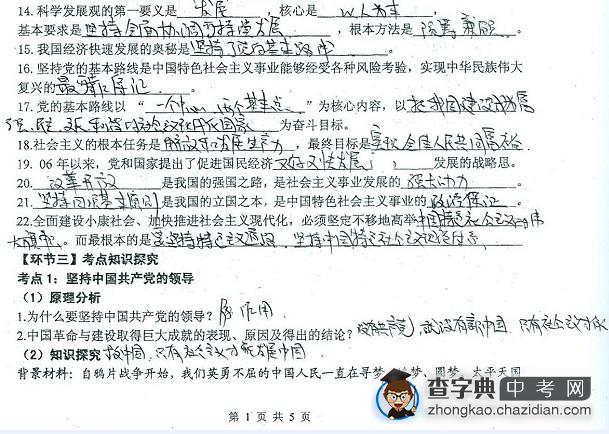 14.科学发展观的第一要义是 发展 ,核心是 以人为本 ,
基本要求是 坚持全面协调可持续发展 ,根本方法是 统筹兼顾 。
15.我国经济快速发展的奥秘是 坚持了党的基本路线 。
16.坚持党的基本路线是中国特色社会主义事业能够经受各种风险考验,实现中华民族伟大
复兴的 最可靠保证 。
17.党的基本路线以“ 一个中心,两个基本点 ”为核心内容,以 把我国建设成为富
强、民主、文明、和谐的社会主义现代化国家 为奋斗目标。
18.社会主义的根本任务是 解放和发展生产力 ,最终目标是 实现全体人民共同富裕
19. 06年以来,党和国家提出了促进国民经济 又好又快发展 发展的战略思。
20. 改革开放 是我国的强国之路,是社会主义事业发展的 强大动力 。
21. 坚持四项基本原则 是我国的立国之本,是中国特色社会主义事业的 政治保证 。
22.全面建设小康社会、加快推进社会主义现代化,必须坚定不移地高举 中国特色社会主义伟
大旗帜 。而最根本的是 坚持中国特色社会主义
【环节三】考点知识探究
考点1:坚持中国共产党的领导
(1)原理分析
1.为什么要坚持中国共产党的领导? 作用
2.中国革命与建设取得巨大成就的表现、原因及得出的结论? 没有共产党,就没有新中国,只有社会主义才能
(2)知识探究 救中国,只有社会主义才能发展中国
背景材料:自鸦片战争开始,我们英勇不屈的中国人民一直在寻梦、追梦、圆梦,太平天国
第 1 页 共 5 页
查字典中考网
zhongkao.chazidian.com